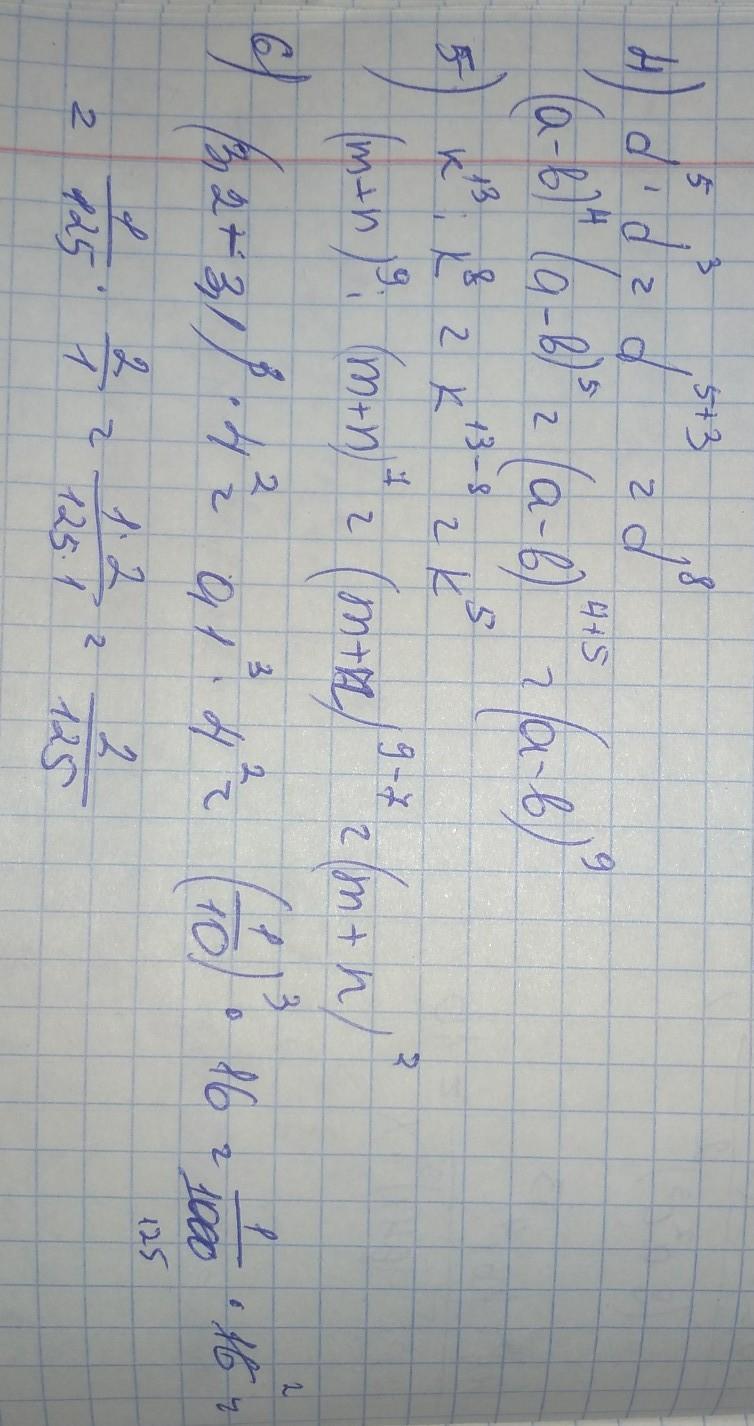 4) d⁵ · d³ = d⁵⁺³ = d⁸
(a-b)⁴ (a-b)⁵ = (a-b)⁴⁺⁵ = (a-b)⁹
5) k¹³ : k⁸ = k¹³⁻⁸ = k⁵
(m+n)⁹ : (m+n)⁷ = (m+n)⁹⁻⁷ = (m+n)²
6) (3,2-3,1)³ · 4² = 0,1³ · 4² = (1/10)³ · 16 = 1/1000 125 · 16 2 =
= 1/125 · 2/1 = 1·2/125·1 = 2/125